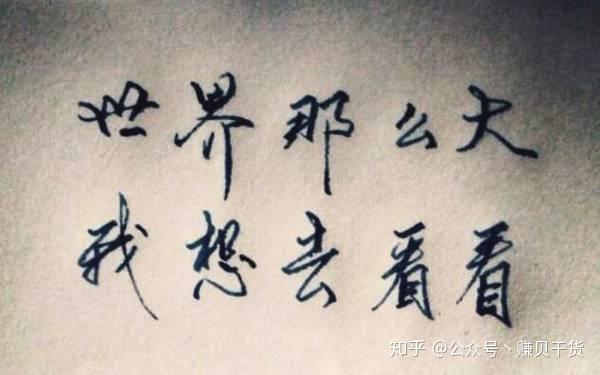 世界那么大
我想去看看
知乎 @公众号丶赚贝干货